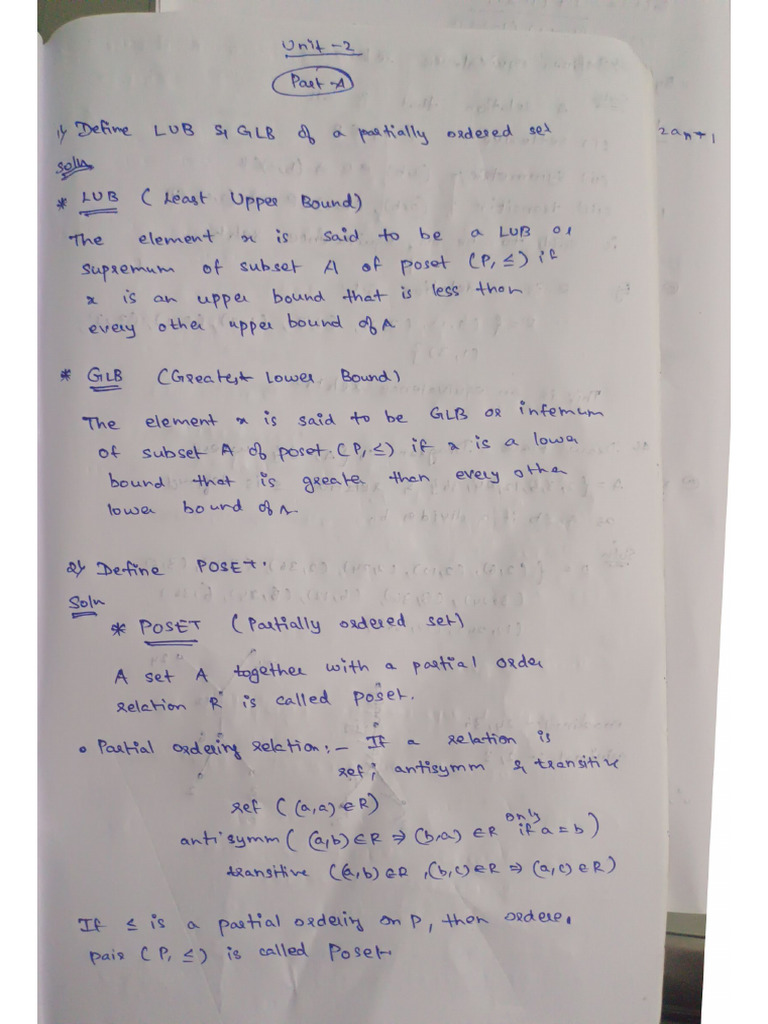 Unit-2
Part-A
1) Define LUB & GLB of a partially ordered set
Soln
* LUB (Least Upper Bound)
The element x is said to be a LUB or
supremum of subset A of poset (P, ≤) if
x is an upper bound that is less than
every other upper bound of A
* GLB (Greatest Lower Bound)
The element x is said to be GLB or infemum
of subset A of poset (P, ≤) if x is a lower
bound that is greater than every other
lower bound of A
2) Define POSET.
Soln
* POSET (Partially ordered set)
A set A together with a partial order
relation R is called poset.
• Partial ordering relation:- If a relation is
ref; antisymm & transitive
ref ((a,a) ∈ R)
antisymm ((a,b) ∈ R ⇒ (b,a) ∈ R only if a = b)
transitive ((a,b) ∈ R, (b,c) ∈ R ⇒ (a,c) ∈ R)
If ≤ is a partial ordering on P, then ordere
pair (P, ≤) is called Poset.
2an+1